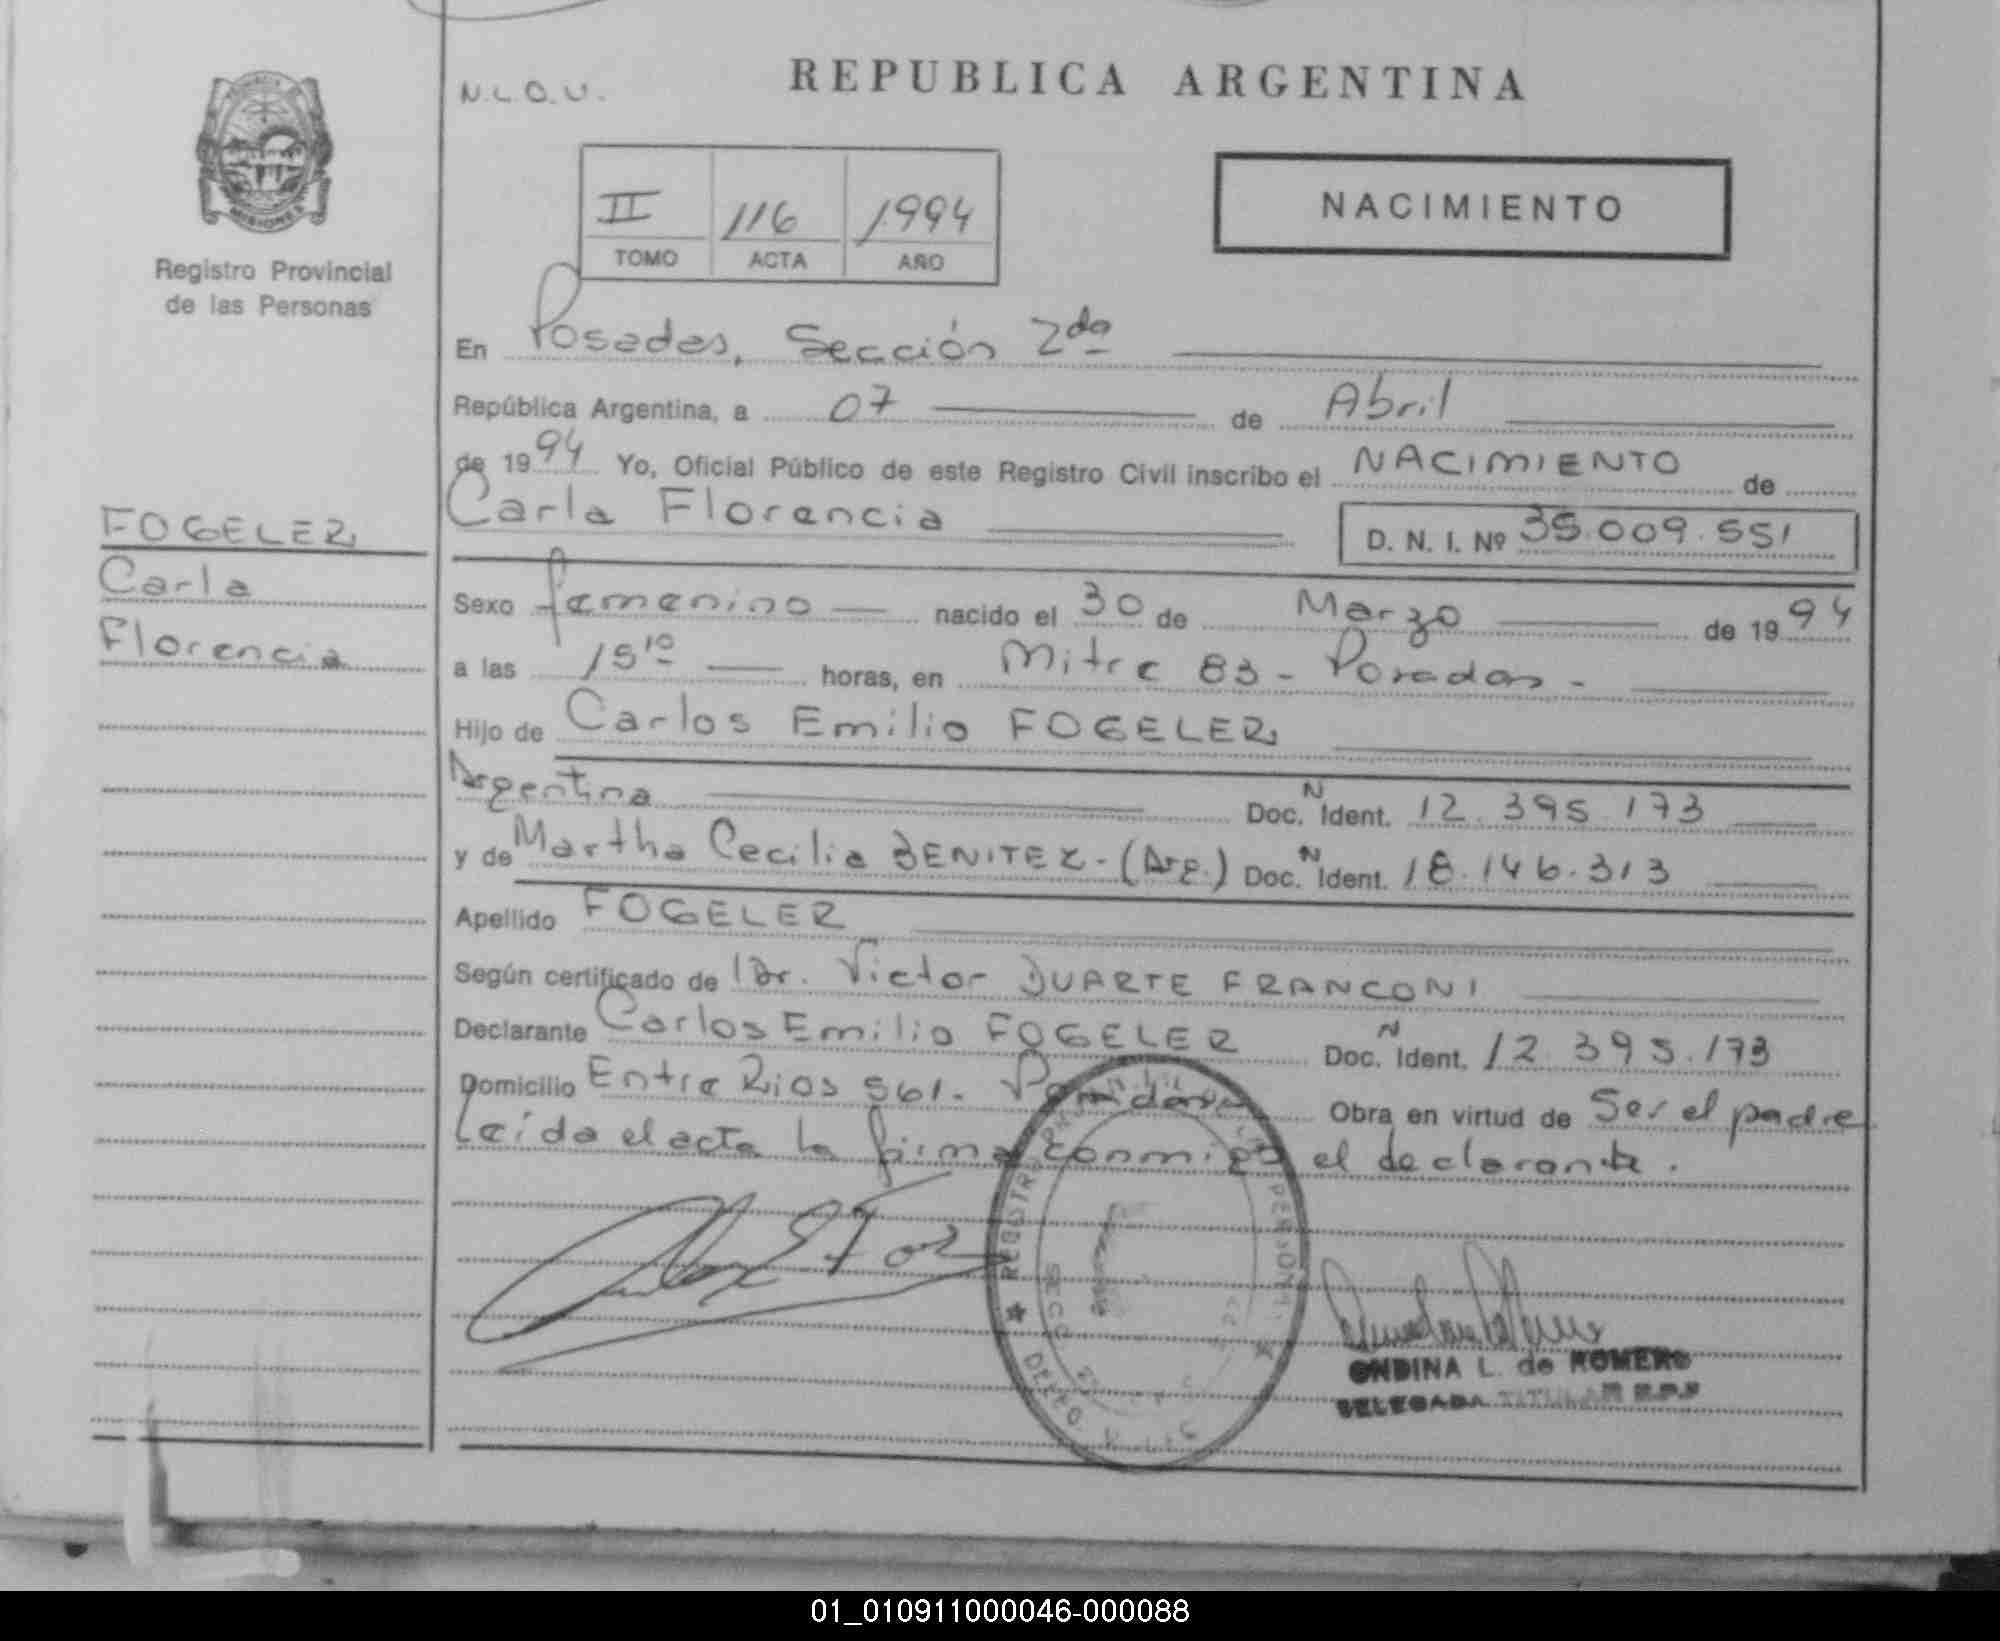 N.L.O.U.
REPUBLICA ARGENTINA
MISIONES
Registro Provincial
de las Personas
II 116 1994
TOMO ACTA AÑO
NACIMIENTO
En Posadas, Sección 2da
República Argentina, a 07 de Abril
de 1994 Yo, Oficial Público de este Registro Civil inscribo el NACIMIENTO de
Carla Florencia D. N. I. Nº 35.009.551
FOGELER
Carla
Florencia
Sexo femenino nacido el 30 de Marzo de 1994
a las 15 10 horas, en Mitre 83 - Posadas -
Hijo de Carlos Emilio FOGELER
Argentina Doc. N Ident. 12.395.173
y de Martha Cecilia BENITEZ - (Arg.) Doc. N Ident. 18.146.313
Apellido FOGELER
Según certificado de Dr. Victor DUARTE FRANCONI
Declarante Carlos Emilio FOGELER Doc. N Ident. 12.395.173
Domicilio Entre Rios 561. Posadas Obra en virtud de Ser el padre
Leída el acta la firma conmigo el declarante.
ONDINA L. de ROMERO
DELEGADA TITULAR R.P.P
01_010911000046-000088